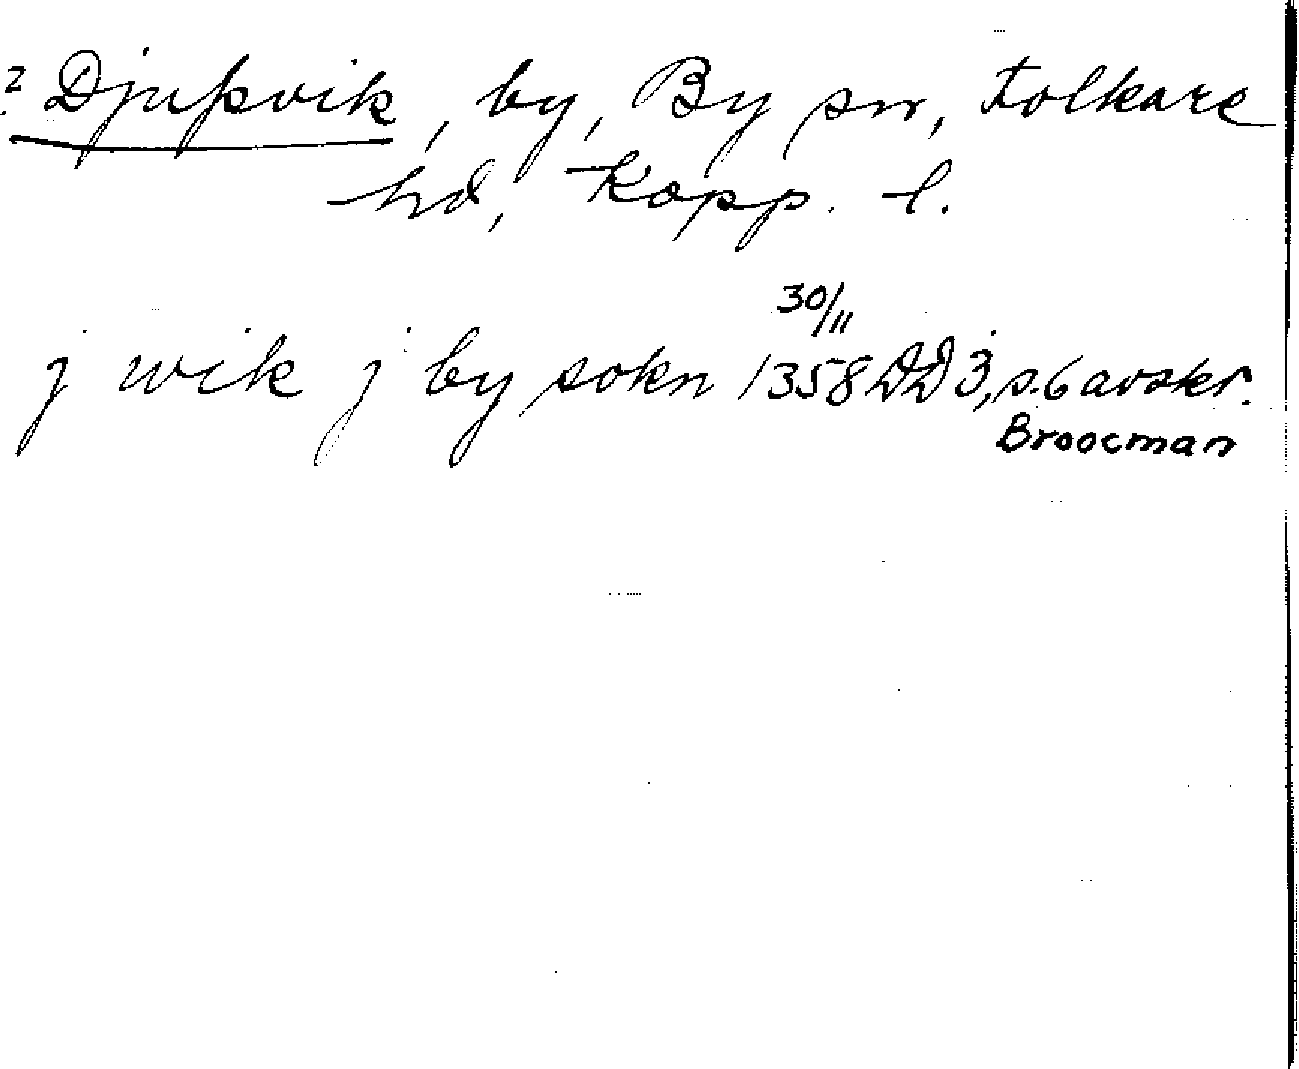 ? Djupvik, by, By sn, Folkare
hd, Kopp. l.
30/11
j wik j by sokn 1358 DD 3, s. 6 avskr.
Broocman